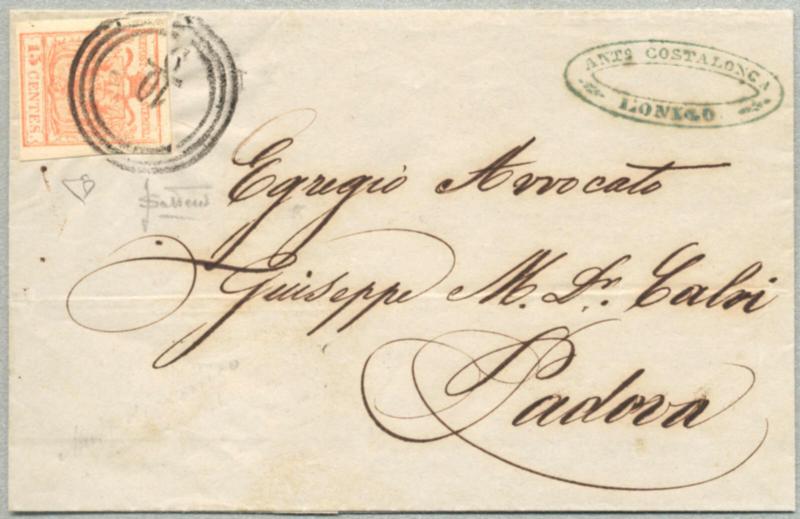 15 CENTES.
10
ANTº COSTALONGA
LONIGO
Egregio Avvocato
Giuseppe M. Dr. Calvi
Padova